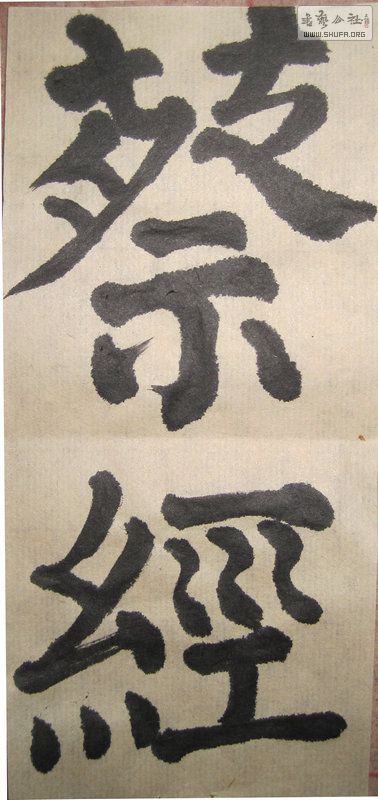 蔡
經
書藝公社
WWW.SHUFA.ORG